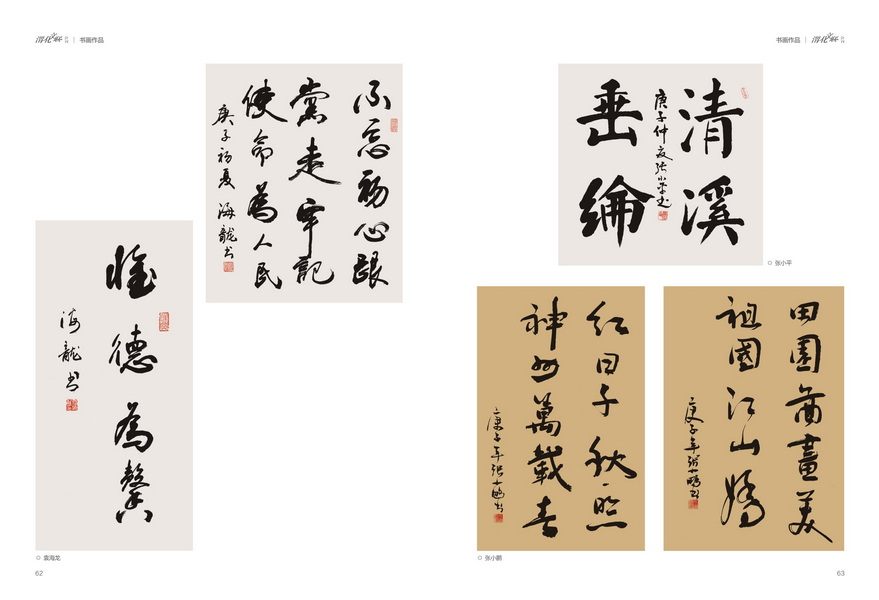 书画作品
不忘初心跟
党走牢记
使命为人民
庚子初夏 海龙书
惟德为馨
海龙书
袁海龙
62
书画作品
清溪
垂纶
庚子仲夏张小平书
张小平
红日千秋照
神州万载春
庚子年张小鹏书
张小鹏
田园图画美
祖国江山娇
庚子年张小鹏书
63